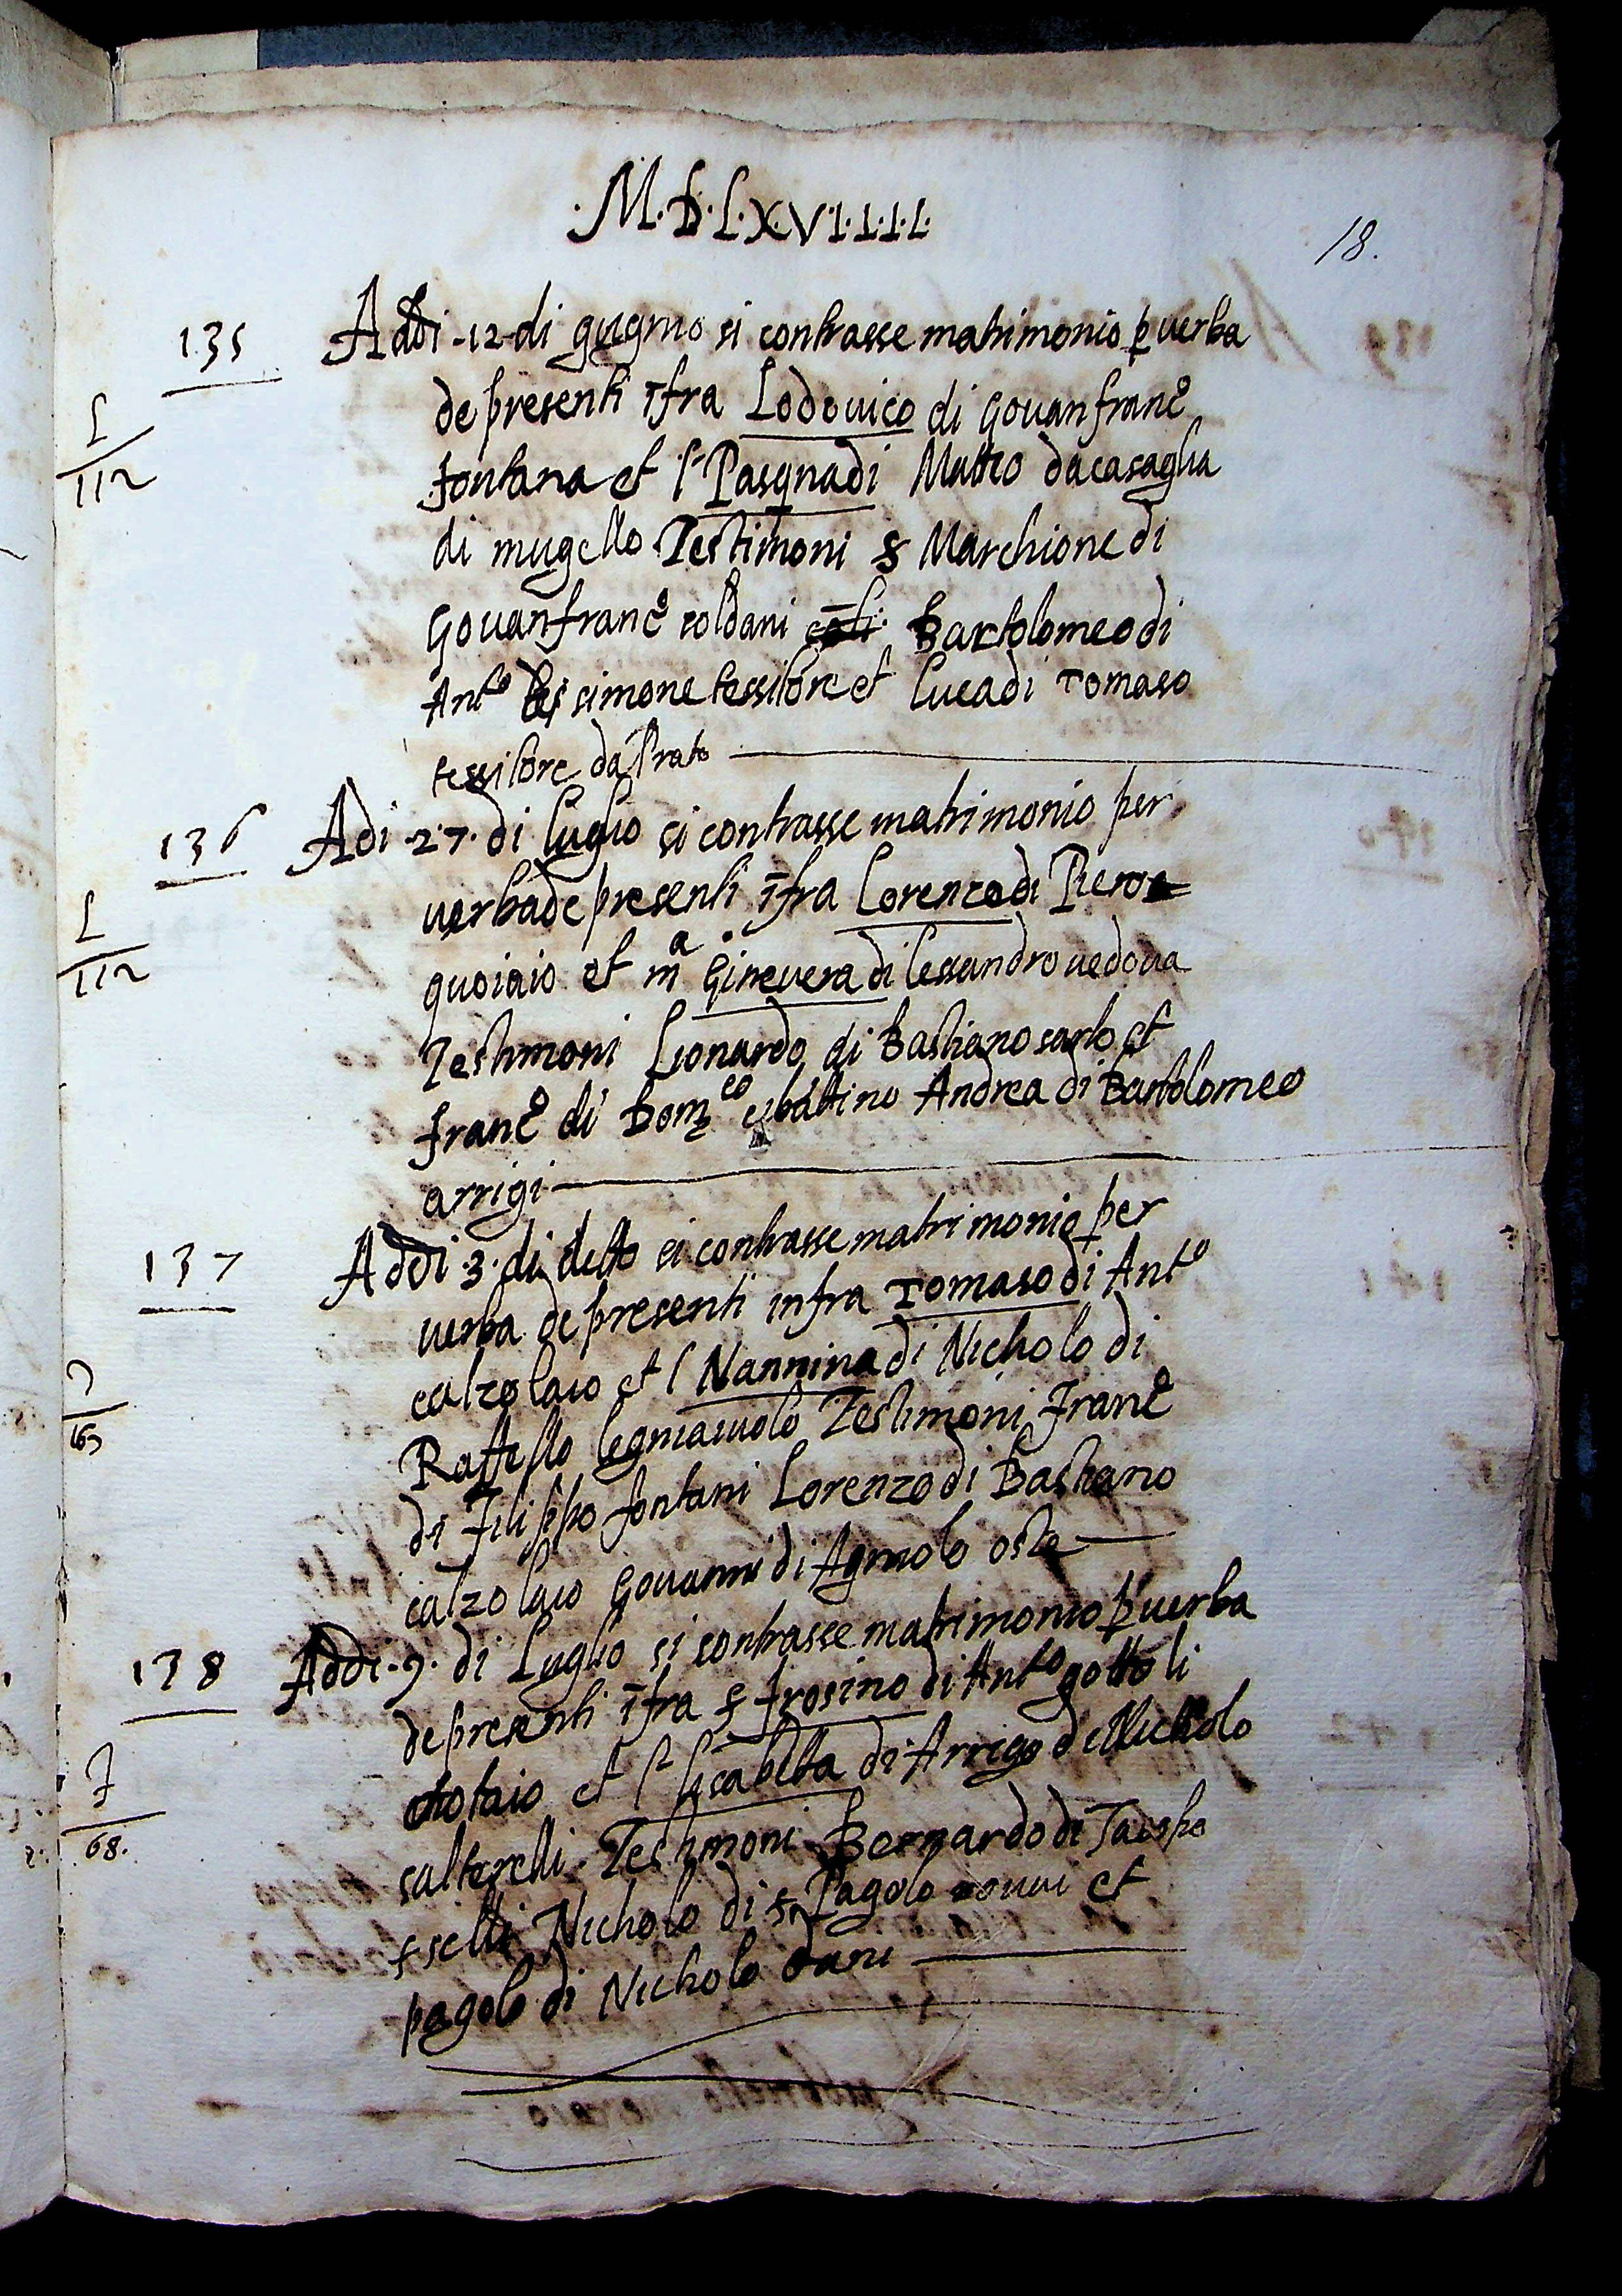 .M.D.L.X.V.I.I.I.I.
18.
135 Addi -12- di gugnio si contrasse matrimonio p verba
L de presenti ifra Lodovico di Govanfranco
112 fontana et l Pasqua di Matteo da casaglia
di mugello Testimoni s Marchione di
Govanfranco soldani Bartolomeo di
Anto simone tessitore et luca di Tomaso
tessitore da Prato
136 Adi .27. di luglio si contrasse matrimonio per
L verba de presenti ifra Lorenzo di Piero
112 quoiaio et ma Ginevera di lessandro vedova
Testimoni Lionardo di Bastiano sarto et
franco di Domco Andrea di Bartolomeo
arrigi
137 Addi .3. di detto si contrasse matrimonio per
verba de presenti infra Tomaso di Anto
calzolaio et l Nannina di Nicholo di
Raffello legniaiuolo Testimoni Franco
di Filippo fontani Lorenzo di Bastiano
calzolaio Govanni di Agniolo oste
138 Addi .9. di Luglio si contrasse matrimonio p verba
de presenti ifra s frosino di Anto gottoli
notaio et l lisabetta di Arrigo di Nicholo
68. salterelli Testimoni Bernardo di Iacopo
Nicholo di s Pagolo et
pagolo di Nicholo dani